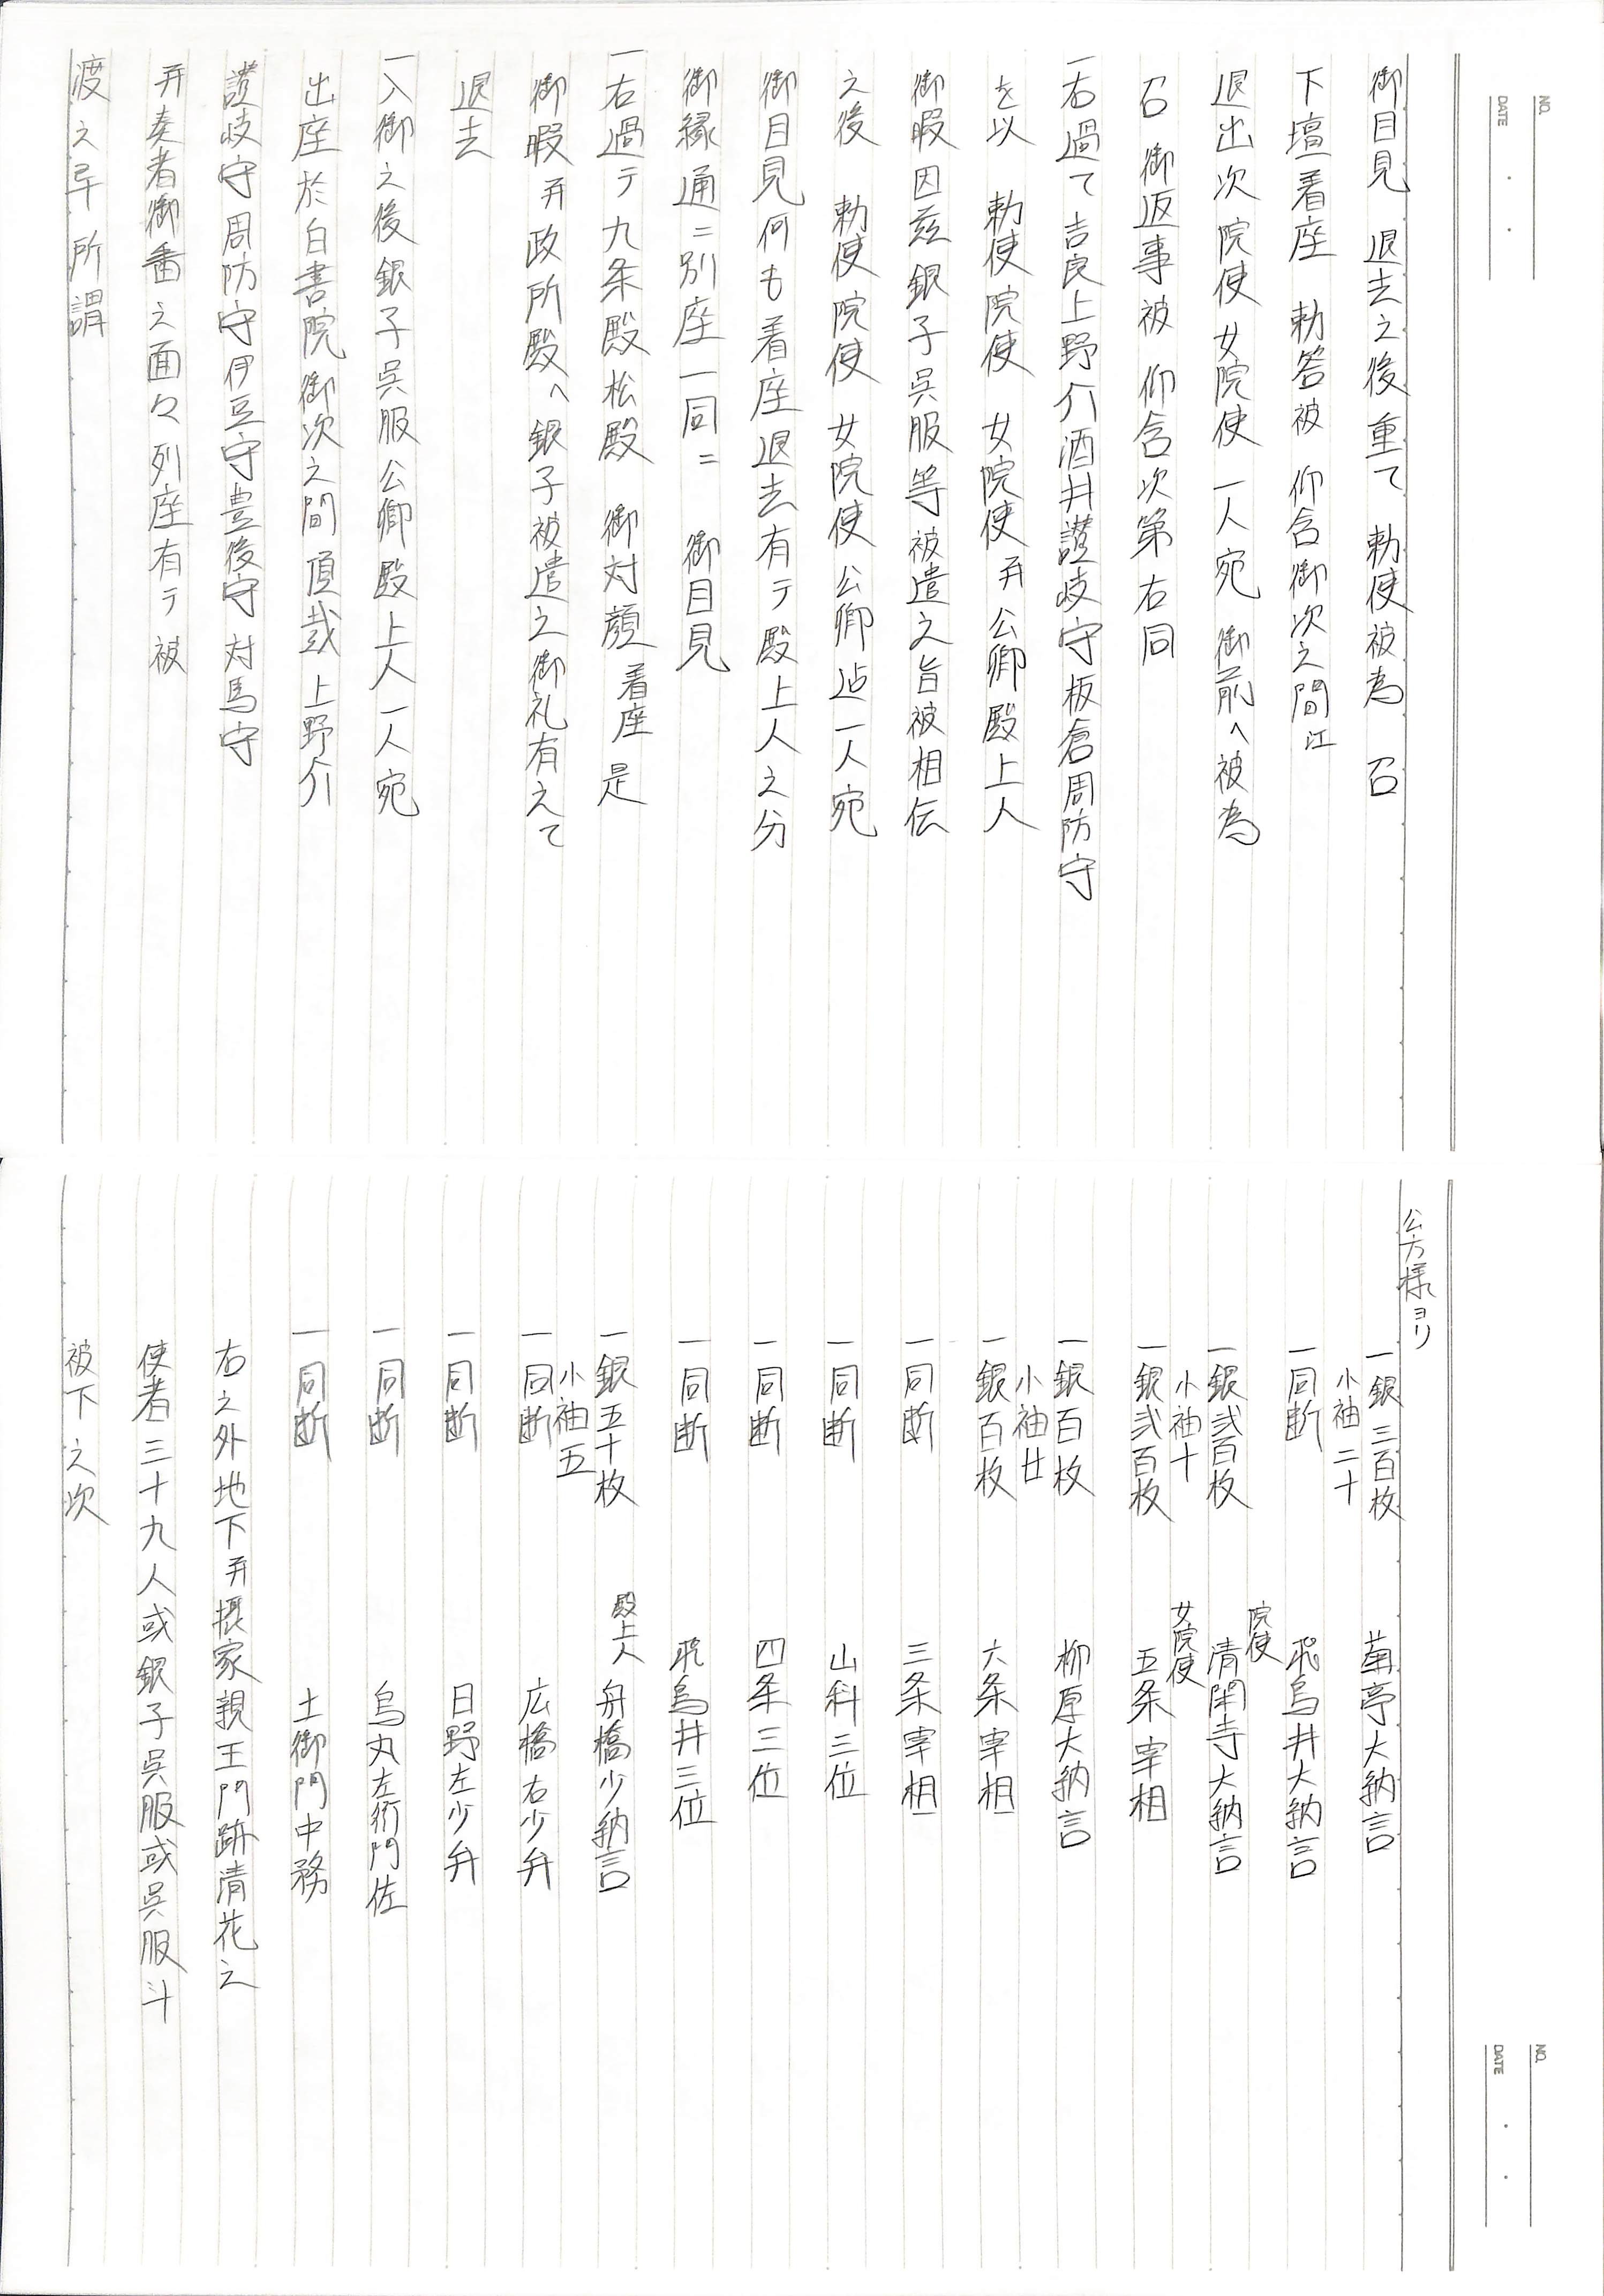 NO.
DATE
御目見 退去之後重て 勅使被為 召
下壇着座 勅答被 仰含御次之間江
退出次院使女院使一人宛 御前へ被為
召 御返事被 仰含次第右同
一右過て吉良上野介酒井讃岐守板倉周防守
を以 勅使院使 女院使并公卿殿上人
御暇因茲銀子呉服等被遣之旨被相伝
之後 勅使院使 女院使公卿迠一人宛
御目見何も着座退去有テ殿上人之分
御縁通ニ別座一同ニ 御目見
一右過テ九条殿松殿 御対顔着座是
御暇并政所殿へ銀子被遣之御礼有之て
退去
一入御之後銀子呉服公卿殿上人一人宛
出座於白書院御次之間頂戴上野介
讃岐守周防守伊豆守豊後守対馬守
并奏者御番之面々列座有テ被
渡之 所謂
NO.
DATE
公方様ヨリ
一銀三百枚 菊亭大納言
小袖二十
一同断 飛鳥井大納言
院使
一銀弐百枚 清閑寺大納言
小袖十
女院使
一銀弐百枚 五条宰相
一銀百枚 柳原大納言
小袖廿
一銀百枚 六条宰相
一同断 三条宰相
一同断 山科三位
一同断 四条三位
一同断 飛鳥井三位
殿上人
一銀五十枚 舟橋少納言
小袖五
一同断 広橋右少弁
一同断 日野左少弁
一同断 烏丸左衛門佐
一同断 土御門中務
右之外地下并摂家親王門跡清花之
使者三十九人或銀子呉服或呉服斗
被下之次